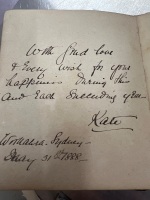 With fond love
& Every wish for your
happiness During this
and Each Succeeding year—
Kate
Woollahra. Sydney—
31st 1888